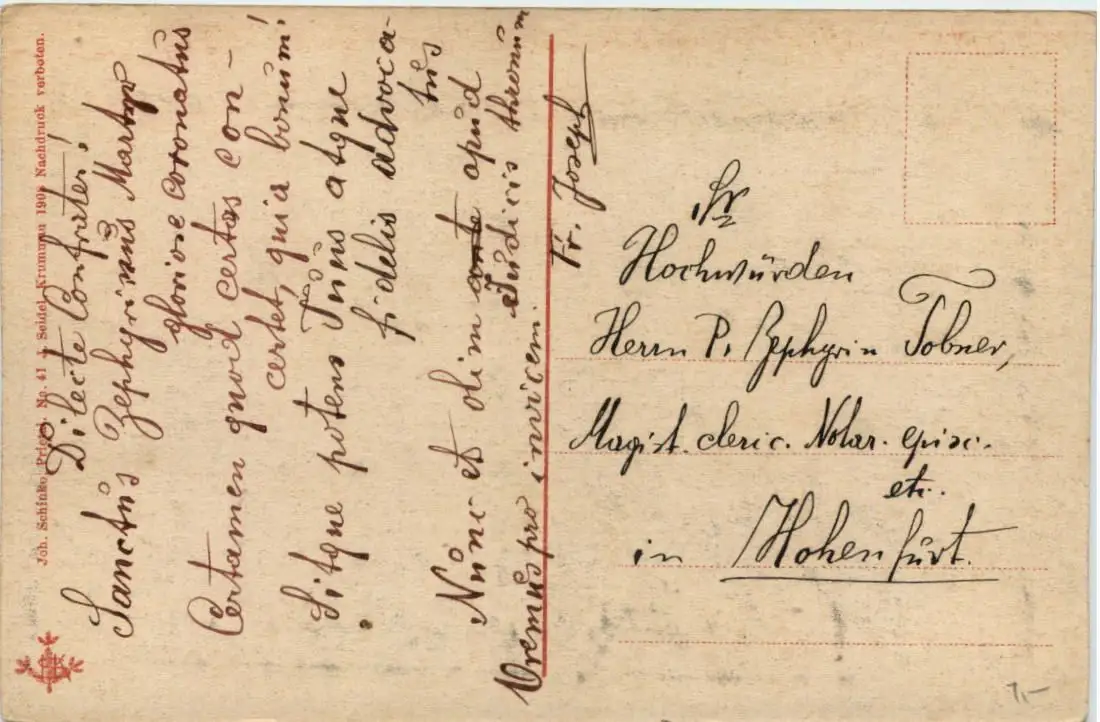 Joh. Schinko, Priem. No. 41 J. Seidel Krummau 1908 Nachdruck verboten.
Dilecte Confrater!
Sanctus Zephyrinus Martyr
gloriose coronatus
Certamen quod certas con-
certet, quia bonum!
Sitque potens Tuus atque
fidelis advoca-
tus
Nunc et olim ante apud
Judicis thronum
Oremus pro invicem.
Fr. Joseph
Sr
Hochwürden
Herrn P. Zephyrin Tobner,
Magist. cleric. Notar. episc.
etc.
in Hohenfurt.
7,-